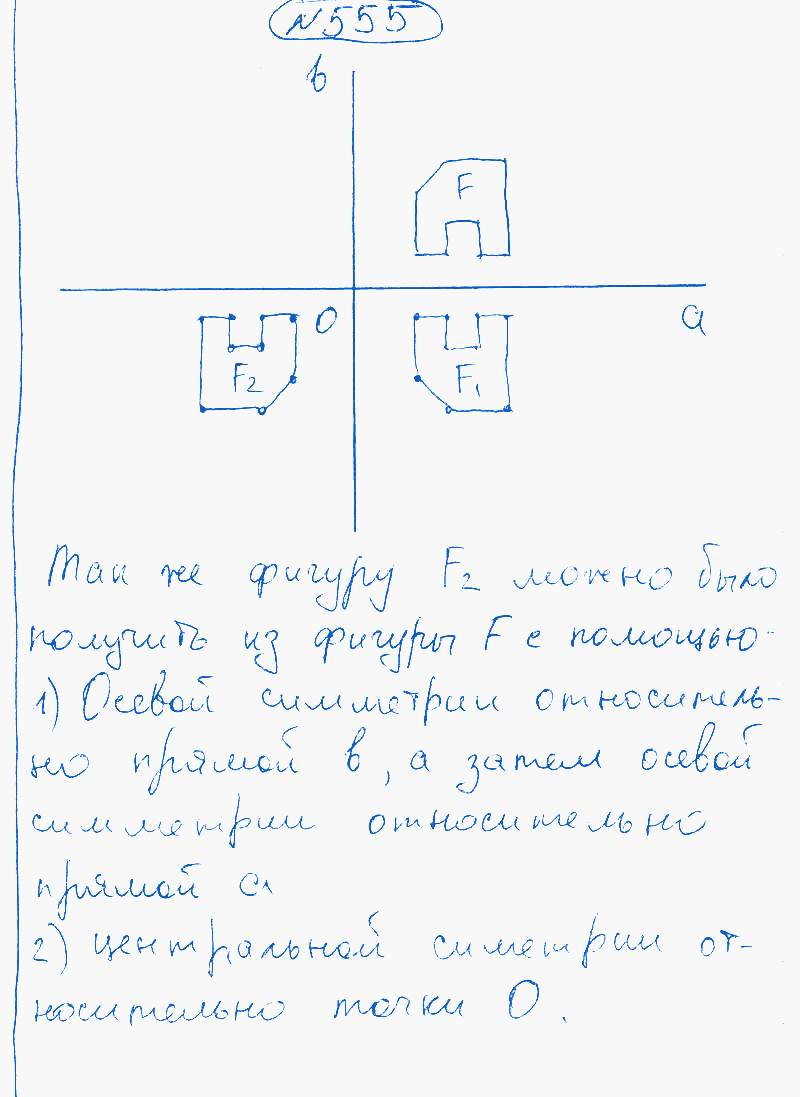 №555
в
F
O
a
F2
F1
Так же фигуру F2 можно было
получить из фигуры F с помощью
1) Осевой симметрии относитель-
но прямой в, а затем осевой
симметрии относительно
прямой а
2) центральной симетрии от-
носительно точки O.